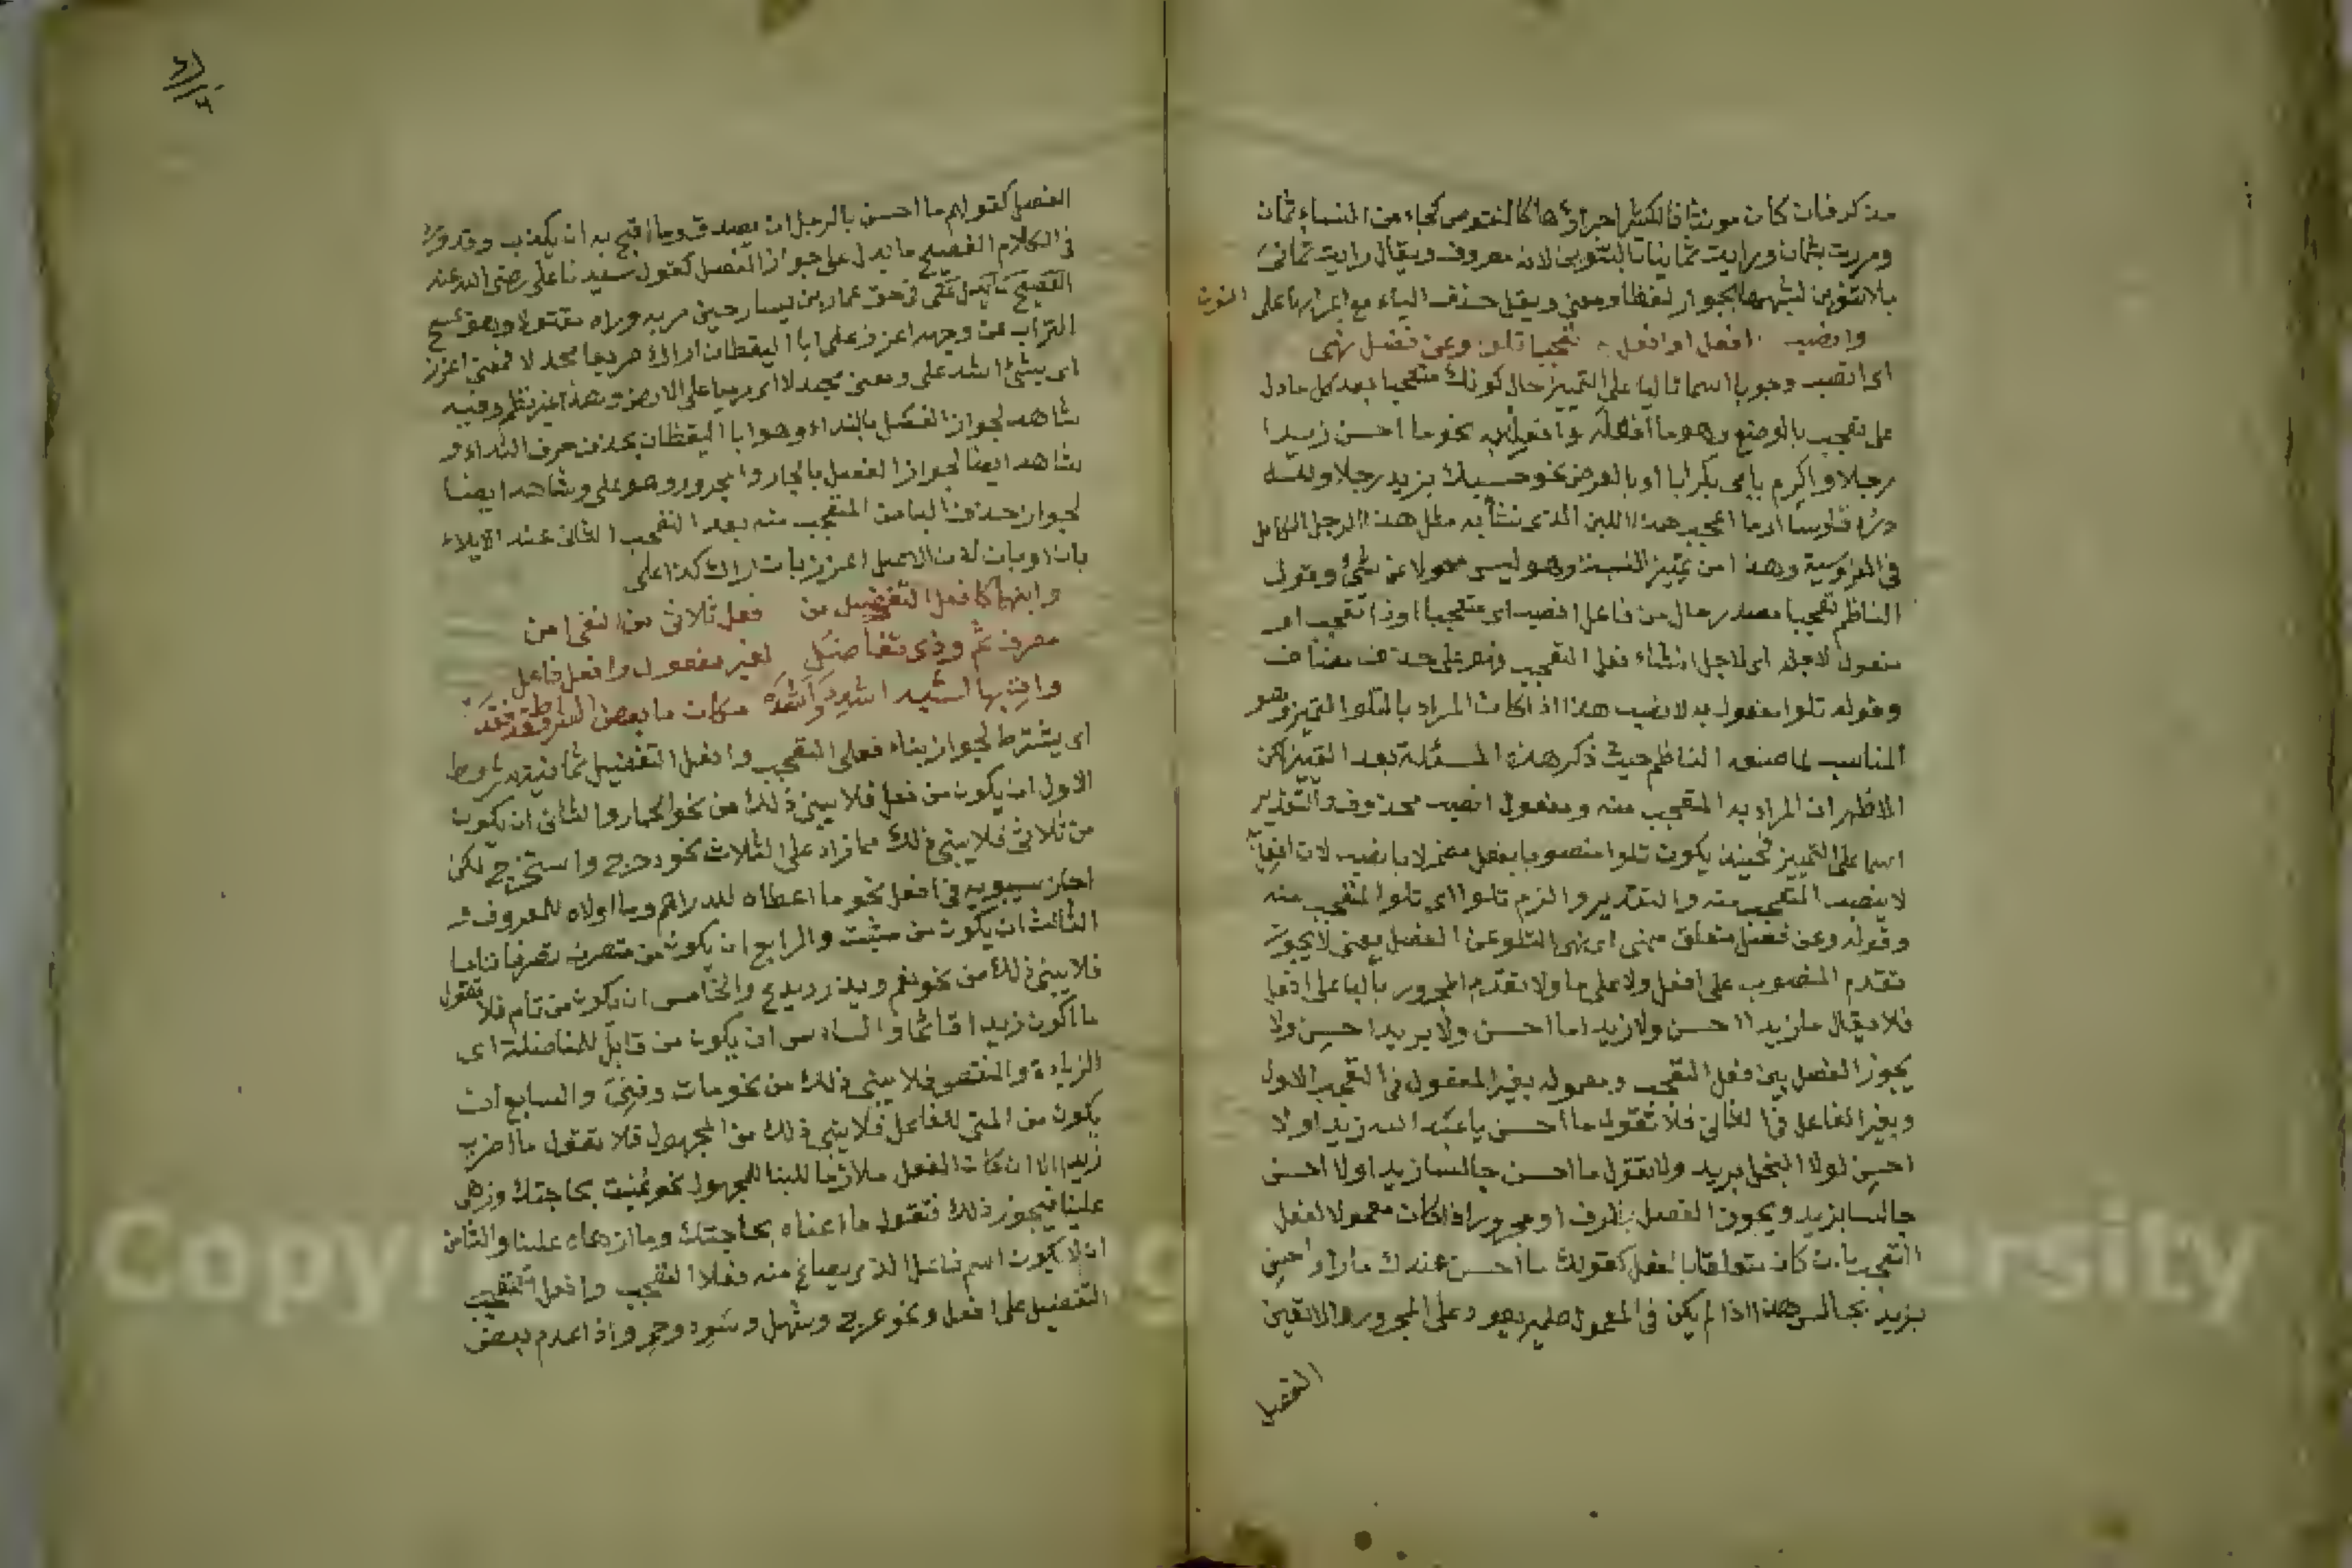 مذكر فان كان مونثا فالكثير اجراؤها كالمنقوص كجاء من النساء ثمان
ومررت بثمان ورايت ثمانيا بالتنوين لانه مصروف ويقال رايت ثماني
بلا تنوين لشبهها بجوار لفظا ومعنى ويقل حذف الياء مع اعرابها على النون
وانصب افعل او افعل به تعجبا تلو وعن فصل نهى
اى انصب وجوبا اسما تاليا على التمييز حال كونك متعجبا بعد كل ما دل
على تعجب بالوضع وهو ما افعله وافعل به نحو ما احسن زيدا
رجلا واكرم بابى بكر ابا او بالعرض نحو حسبك بزيد رجلا ولله
دره فارسا اى ما اعجب هذا اللبن الذى نشأ به مثل هذا الرجل الكامل
فى الفروسية وهذا من تمييز النسبة وهو ليس محولا عن شئ وقول
الناظم تعجبا مصدر حال من فاعل انصب اى متعجبا او ذا تعجب او
مفعول لاجله اى لاجل انشاء فعل التعجب فهو على حذف مضاف
وقوله تلوا مفعول به لانصب هذا اذا كان المراد بالتلو التمييز وهو
المناسب لما صنعه الناظم حيث ذكر هذه المسئلة بعد التمييز لكن
الاظهر ان المراد به المتعجب منه ومفعول انصب محذوف والتقدير
اسما على التمييز فحينئذ يكون تلوا منصوبا بفعل مضمر لا بانصب لان افعل
لا ينصب المتعجب منه والتقدير والزم تلوا اى تلوا المتعجب منه
وقوله وعن فصل متعلق بنهى اى نهى التلو عن الفصل يعنى لا يجوز
تقدم المنصوب على افعل ولا على ما ولا تقدم المجرور بالبا على افعل
فلا يقال ما زيدا احسن ولا زيدا ما احسن ولا بزيد احسن ولا
يجوز الفصل بين فعل التعجب ومعموله بغير المعقول فى التعجب الاول
وبغير الفاعل فى الثانى فلا تقول ما احسن يا عبد الله زيدا ولا
احسن لولا البخل بزيد ولا تقول ما احسن جالسا زيدا ولا احسن
جالسا بزيد ويجوز الفصل بظرف او مجرور اذا كان معمولا لفعل
التعجب بان كان متعلقا بالفعل كقولك ما احسن عندك مارا واحسن
بزيد بجالس هذا اذا لم يكن فى المعمول ضمير يعود على المجرور والا تعين
الفصل
الفصل كقولهم ما احسن بالرجل ان يصدق وما اقبح به ان يكذب وقد ورد
فى الكلام الفصيح ما يدل على جواز الفصل كقول سيدنا على رضى الله عنه
فى حق عمار بن يسار حين مر به وراه مقتولا وهو يمسح
التراب عن وجهه اعزز على ابا اليقظان ان اراك صريعا مجدلا فمعنى اعزز
اى بشئ اشد على ومعنى مجدلا اى مرميا على الارض وهذا غير نظم وفيه
شاهد لجواز الفصل بالنداء وهو ابا اليقظان بحذف حرف النداء و
شاهد ايضا لجواز الفصل بالجار والمجرور وهو على وشاهد ايضا
لجواز حذف البا من المتعجب منه بعد التعجب الثانى عند الايلاء
بان او بان لان الاصل اعزز بان اراك كذا على
وابنهما كافعل التفضيل من فعل ثلاثى من النفى امن
مصرف تم وذى تفاضل لغير مفعول وافعل فاعل
وائت بها اشد اشدد مكان ما بعض الشروط قد فقد
اى يشترط لجواز بناء فعلى التعجب وافعل التفضيل ثمانية شروط
الاول ان يكون من فعل فلا يبنى ذلك من نحو الحمار والثانى ان يكون
من ثلاثى فلا يبنى ذلك مما زاد على الثلاث نحو دحرج واستخرج لكن
اجاز سيبويه فى افعل نحو ما اعطاه للدراهم وما اولاه للمعروف
الثالث ان يكون من مثبت والرابع ان يكون من متصرف تصرفا تاما
فلا يبنى ذلك من نحو نعم ويذر ويدع والخامس ان يكون من تام فلا تقول
ما اكون زيدا قائما والسادس ان يكون من قابل للمفاضلة اى
الزيادة والنقص فلا يبنى ذلك من نحو مات وفنى والسابع ان
يكون من المبنى للفاعل فلا يبنى ذلك من المجهول فلا تقول ما اضرب
زيدا الا ان كان الفعل ملازما للبنا للمجهول نحو عنيت بحاجتك وزهى
علينا فيجوز ذلك فتقول ما اعناه بحاجتك وما ازهاه علينا والثامن
ان لا يكون اسم فاعل الذى يصاغ منه فعلا التعجب وافعل
التفضيل على افعل ونحو عرج وشهل وسود وحمر واذا عدم بعض
Copyright © King Saud University